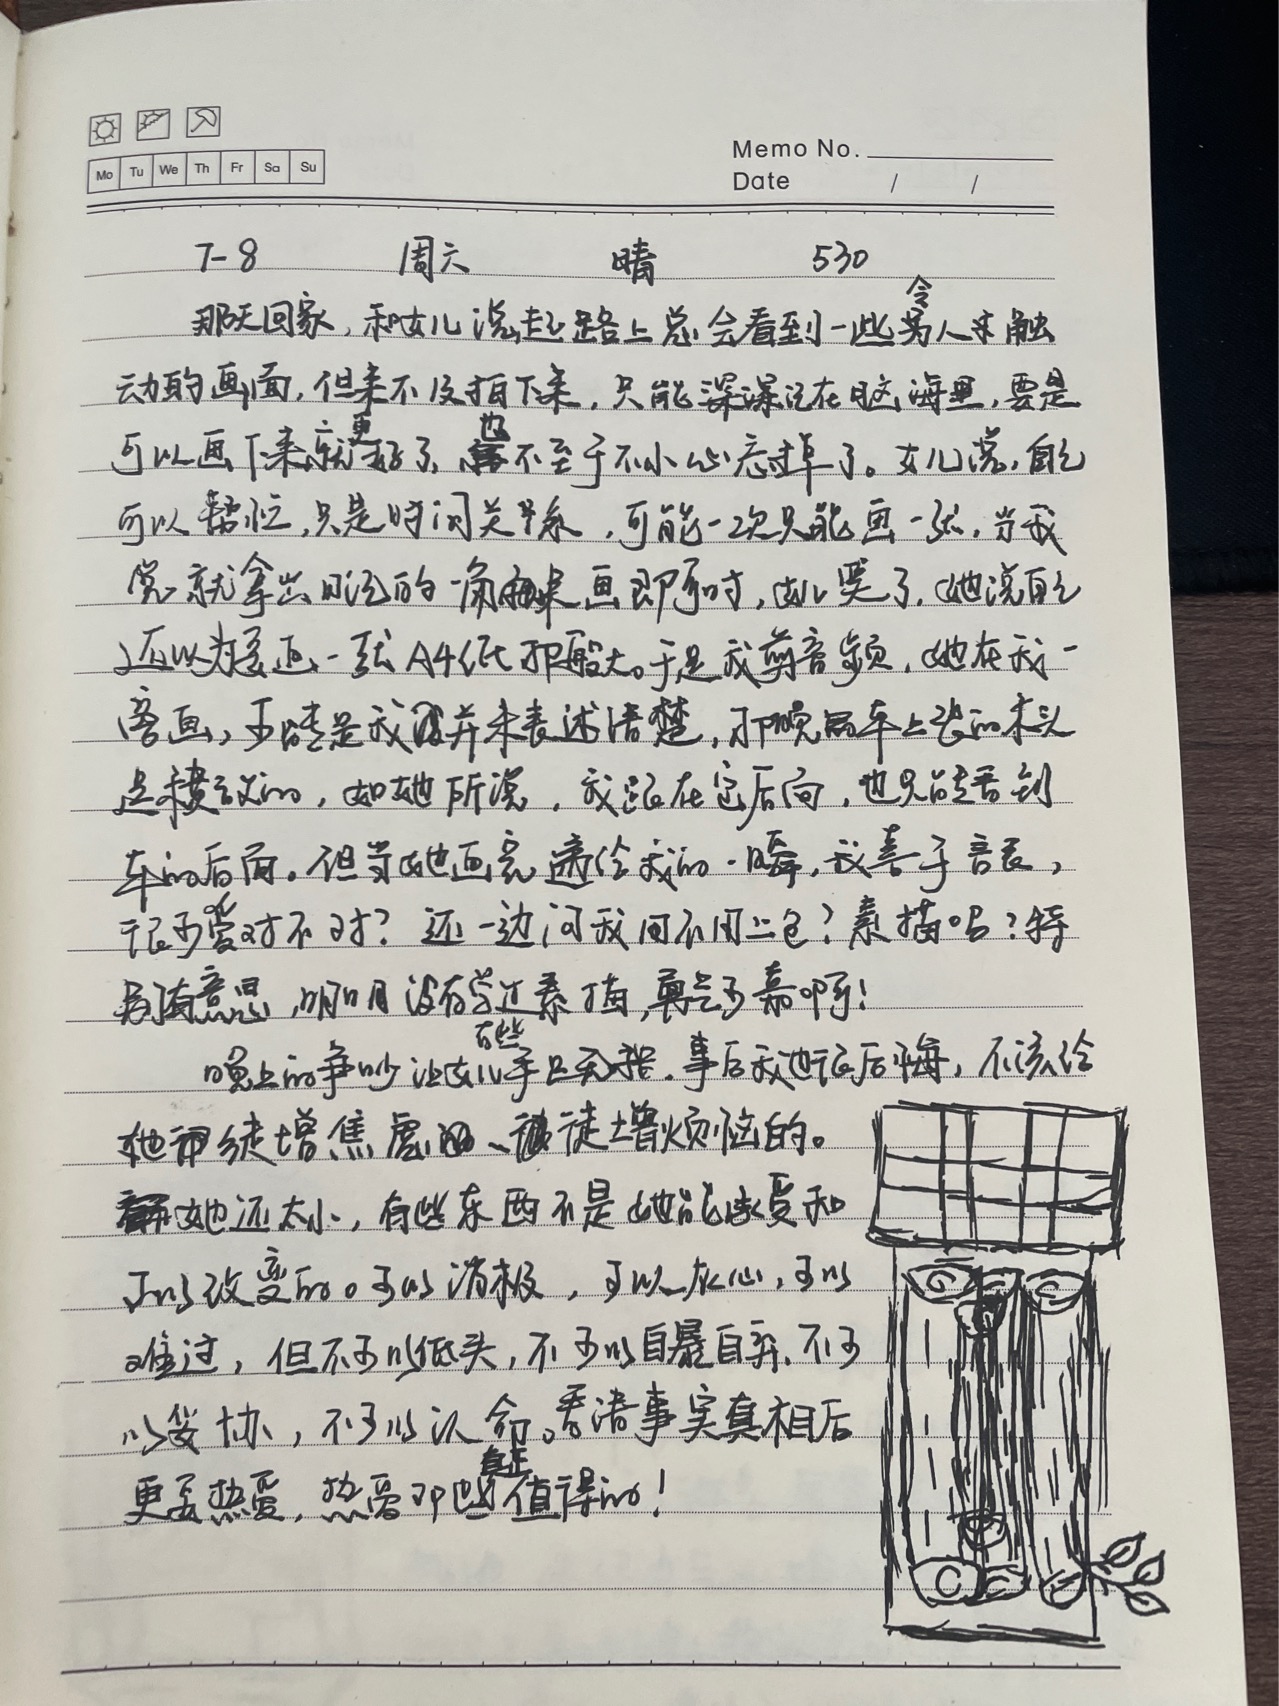 Mo Tu We Th Fr Sa Su
Memo No.
Date / /
7-8 周六 晴 530
那天回家，和女儿说起路上总会看到一些令人触
动的画面，但来不及拍下来，只能深深记在脑海里，要是
可以画下来就更好了，也不至于不小心忘掉了。女儿说，自己
可以帮忙，只是时间关系，可能一次只能画一张，当我
说就拿出日记的一角来画即可时，女儿笑了，她说自己
还以为要画一张A4纸那般大。于是我剪音频，她在我一
旁画，可能是我并未表述清楚，那晚车上装的木头
是横放的，如她所说，我跟在它后向，也只能看到
车的后面。但当她画完递给我的一瞬，我喜于言表，
很可爱对不对？还一边问我用不用上色？素描吗？特
别有意思，明明没有学过素描，勇气可嘉啊！
晚上的争吵让女儿有些手足无措，事后我也很后悔，不该给
她徒增焦虑、徒增烦恼的。
她还太小，有些东西不是她能承受和
可以改变的。可以消极，可以灰心，可以
难过，但不可以低头，不可以自暴自弃、不可
以妥协，不可以认命。看清事实真相后
更要热爱，热爱那些真正值得的！